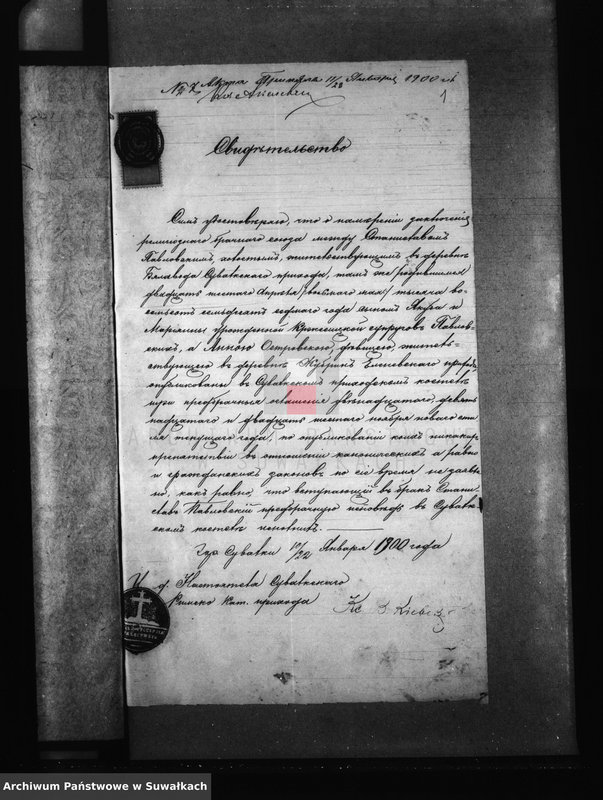 № 2 Актъ 11/23 Января 1900 г.
1
Свидѣтельство
Симъ удостовѣряю, что о намѣреніи заключенія
религіознаго брачнаго союза между Станиславомъ
Павловскимъ, холостымъ, жительствующимъ въ деревнѣ
Сувалкскаго прихода, тамъ же родившимся
двадцать шестого Апрѣля /восьмого мая/ тысяча во-
семьсотъ семьдесятъ года сыномъ и
Маріанны урожденной супруговъ Павлов-
скихъ, а Анною Островскою, дѣвицею, житель-
ствующею въ деревнѣ Еленевскаго прихода
опубликованы въ Сувалкскомъ приходскомъ костелѣ
три предбрачныя оглашенія двѣнадцатаго, девят-
надцатаго и двадцать шестого ноября новаго сти-
ля текущаго года, по опубликованіи коихъ никакихъ
препятствій въ отношеніи каноническихъ а равно
и гражданскихъ законовъ по сіе время не заявле-
но, какъ равно, что вступающій въ бракъ Стани-
славъ Павловскій предбрачную исповѣдь въ Сувалк-
скомъ костелѣ исполнилъ.
Гор. Сувалки 10/22 Января 1900 года
И. д. Настоятеля Сувалкскаго
Римско Кат. прихода Кс
Archiwum Państwowe w Suwałkach